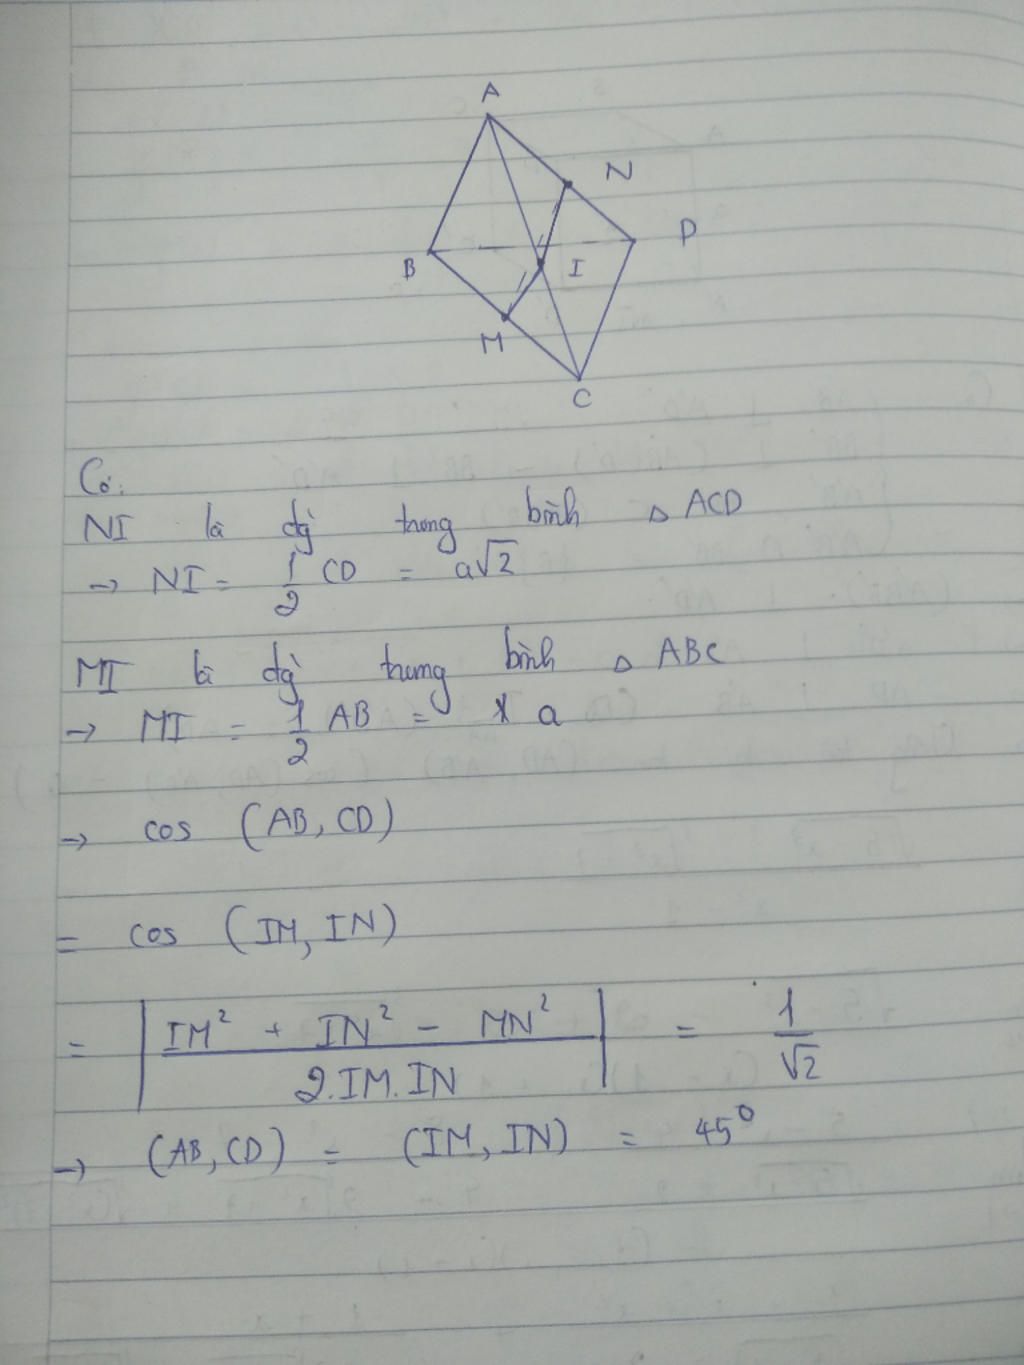 A
N
B
I
D
M
C
Có:
NI là đg trung bình △ ACD
→ NI = 1/2 CD = a√2
MI là đg trung bình △ ABC
→ MI = 1/2 AB = a
→ cos (AB, CD)
= cos (IM, IN)
= | (IM² + IN² - MN²) / (2.IM.IN) | = 1/√2
→ (AB, CD) = (IM, IN) = 45°